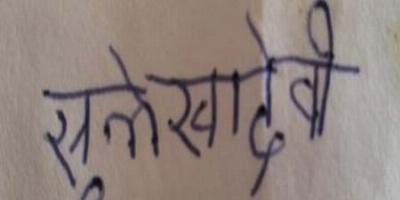 सुलेखादेवी